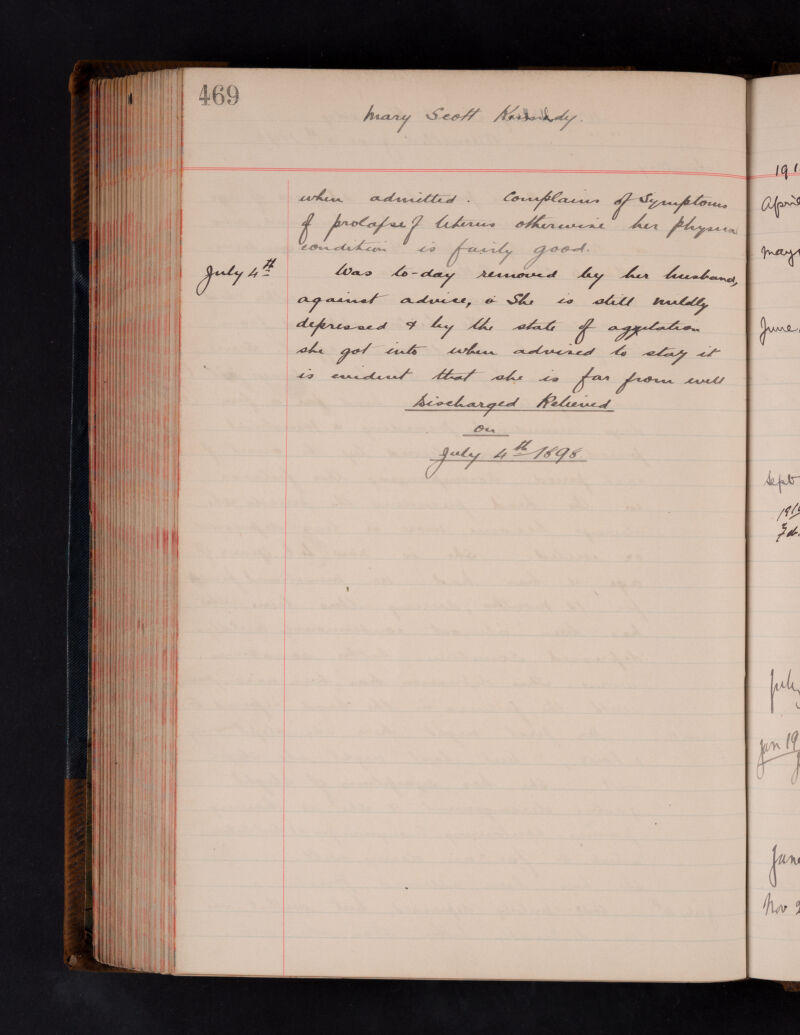 469
Mary Scott Kennedy.
when admitted. Complains of Symptoms
of prolapse of Uterus otherwise her physical
condition is fairly good.
July 4th Was to-day removed by her husband,
against advise, & She is still mildly
depressed & by the state of aggitation
she got into when advised to stay it
is evident that she is far from well
Discharged Relieved
On
July 4th 1898.
191
April
May
June
Sept
Feb.
July
Jan 19
June
Nov 2